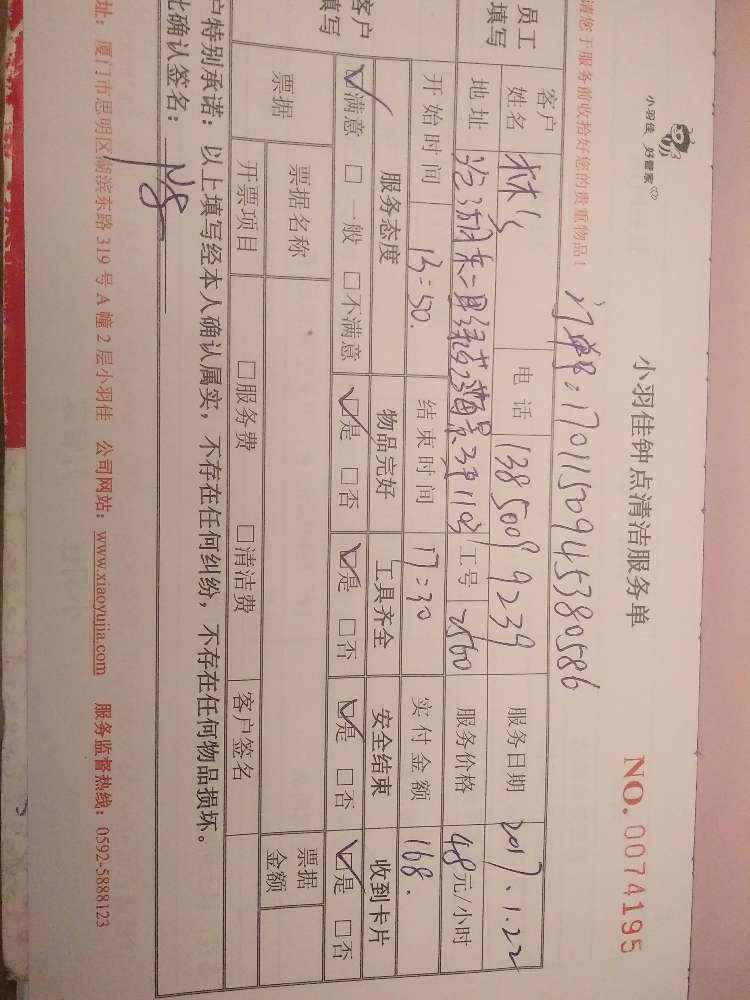 小羽佳 好管家
小羽佳钟点清洁服务单
NO. 0074195
请您于服务前收拾好您的贵重物品!
订单号:1701150945380586
员工填写
客户姓名 林 电话 13850099239 服务日期 2017.1.22
地址 工号 2560 服务价格 48元/小时
开始时间 13:50. 结束时间 17:30 实付金额 168.
客户填写
服务态度 物品完好 工具齐全 安全结束 收到卡片
☑满意 □一般 □不满意 ☑是 □否 ☑是 □否 ☑是 □否 ☑是 □否
票据 票据名称 票据金额
开票项目 □服务费 □清洁费 客户签名
户特别承诺:以上填写经本人确认属实,不存在任何纠纷,不存在任何物品损坏。
此确认签名:
址:厦门市思明区湖滨东路319号A幢2层小羽佳 公司网站:www.xiaoyujia.com 服务监督热线:0592-5888123